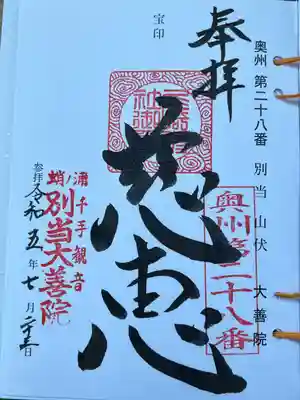 奥州 第二十八番 別当 山伏 大善院
奥州第二十八番
奉拝
宝印
慈恵
浦千手観音
蛸ノ
別当大善院
参拝 令和五年七月二十三日